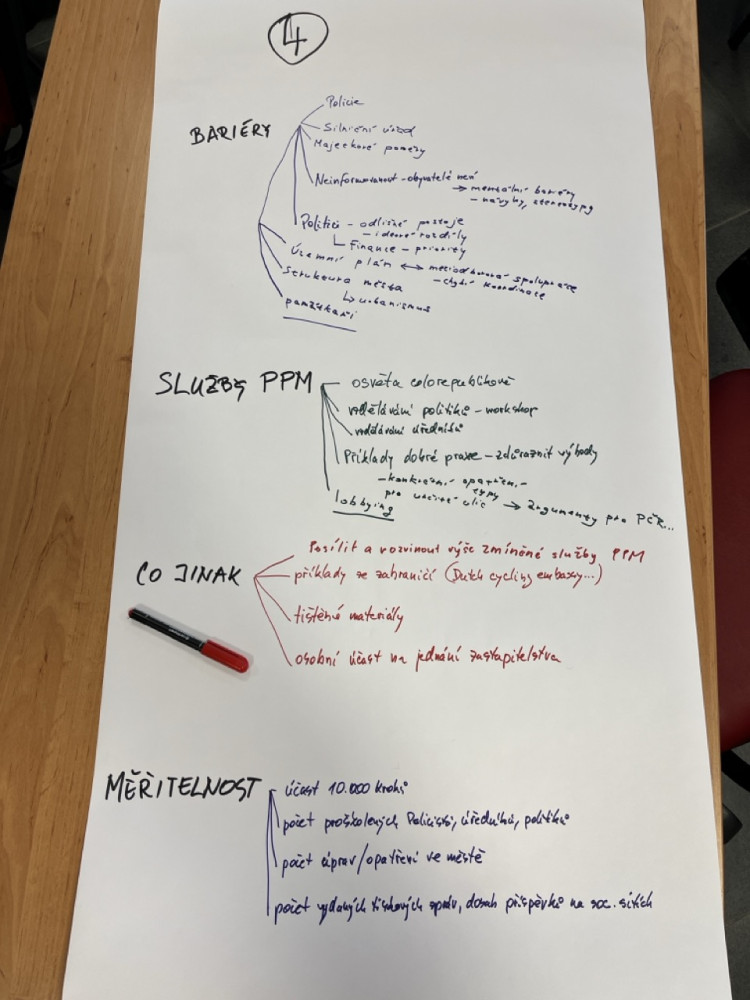 4
BARIÉRY
Policie
Silniční úřad
Majetkové poměry
Neinformovanost - obyvatelé není
→ mentální bariéry
- návyky, stereotypy
Politici - odlišné postoje
- ideové rozdíly
Finance - priority
Územní plán ↔ mezioborová spolupráce
- chybí koordinace
Struktura města
↳ urbanismus
památkáři
SLUŽBY PPM
osvěta celorepublikově
vzdělávání politiků - workshop
vzdělávání úředníků
Příklady dobré praxe - zdůraznit výhody
- konkrétní opatření -
pro určité typy ulic
lobbying
→ Argumenty pro PČR...
CO JINAK
Posílit a rozvinout výše zmíněné služby PPM
příklady ze zahraničí (Dutch cycling embassy...)
tištěné materiály
osobní účast na jednání zastupitelstva
MĚŘITELNOST
účast 10.000 kroků
počet proškolených Policistů, úředníků, politiků
počet úprav/opatření ve městě
počet vydaných tiskových zpráv, dosah příspěvků na soc. sítích